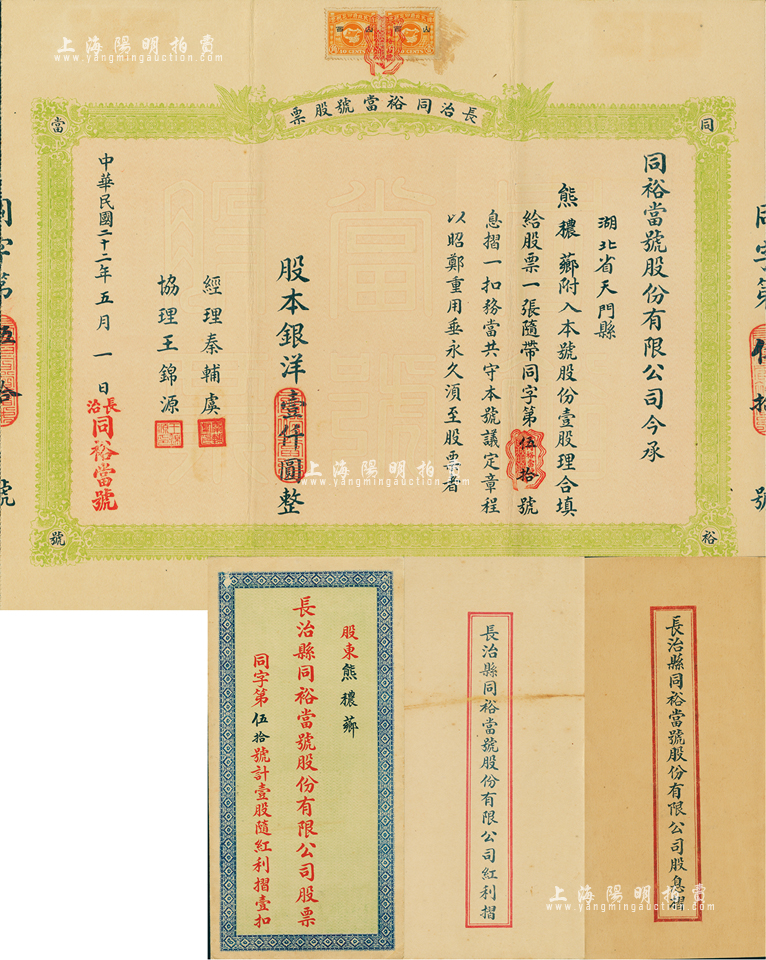 上海陽明拍賣
www.yangmingauction.com
上海陽明拍賣
www.yangmingauction.com
山西
山西
長治同裕當號股票
同
裕
當
號
同裕當號股份有限公司今承
湖北省天門縣
熊穠薌附入本號股份壹股理合填
給股票一張隨帶同字第伍拾號
息摺一扣務當共守本號議定章程
以昭鄭重用垂永久須至股票者
股本銀洋壹仟圓整
經理秦輔虞
協理王錦源
中華民國二十二年五月一日
長治
同裕當號
同字第伍拾號
同字第伍拾號
上海陽明拍賣
www.yangmingauction.com
股東熊穠薌
長治縣同裕當號股份有限公司股票
同字第伍拾號計壹股隨紅利摺壹扣
長治縣同裕當號股份有限公司紅利摺
長治縣同裕當號股份有限公司股息摺
上海陽明拍賣
www.yangmingauction.com